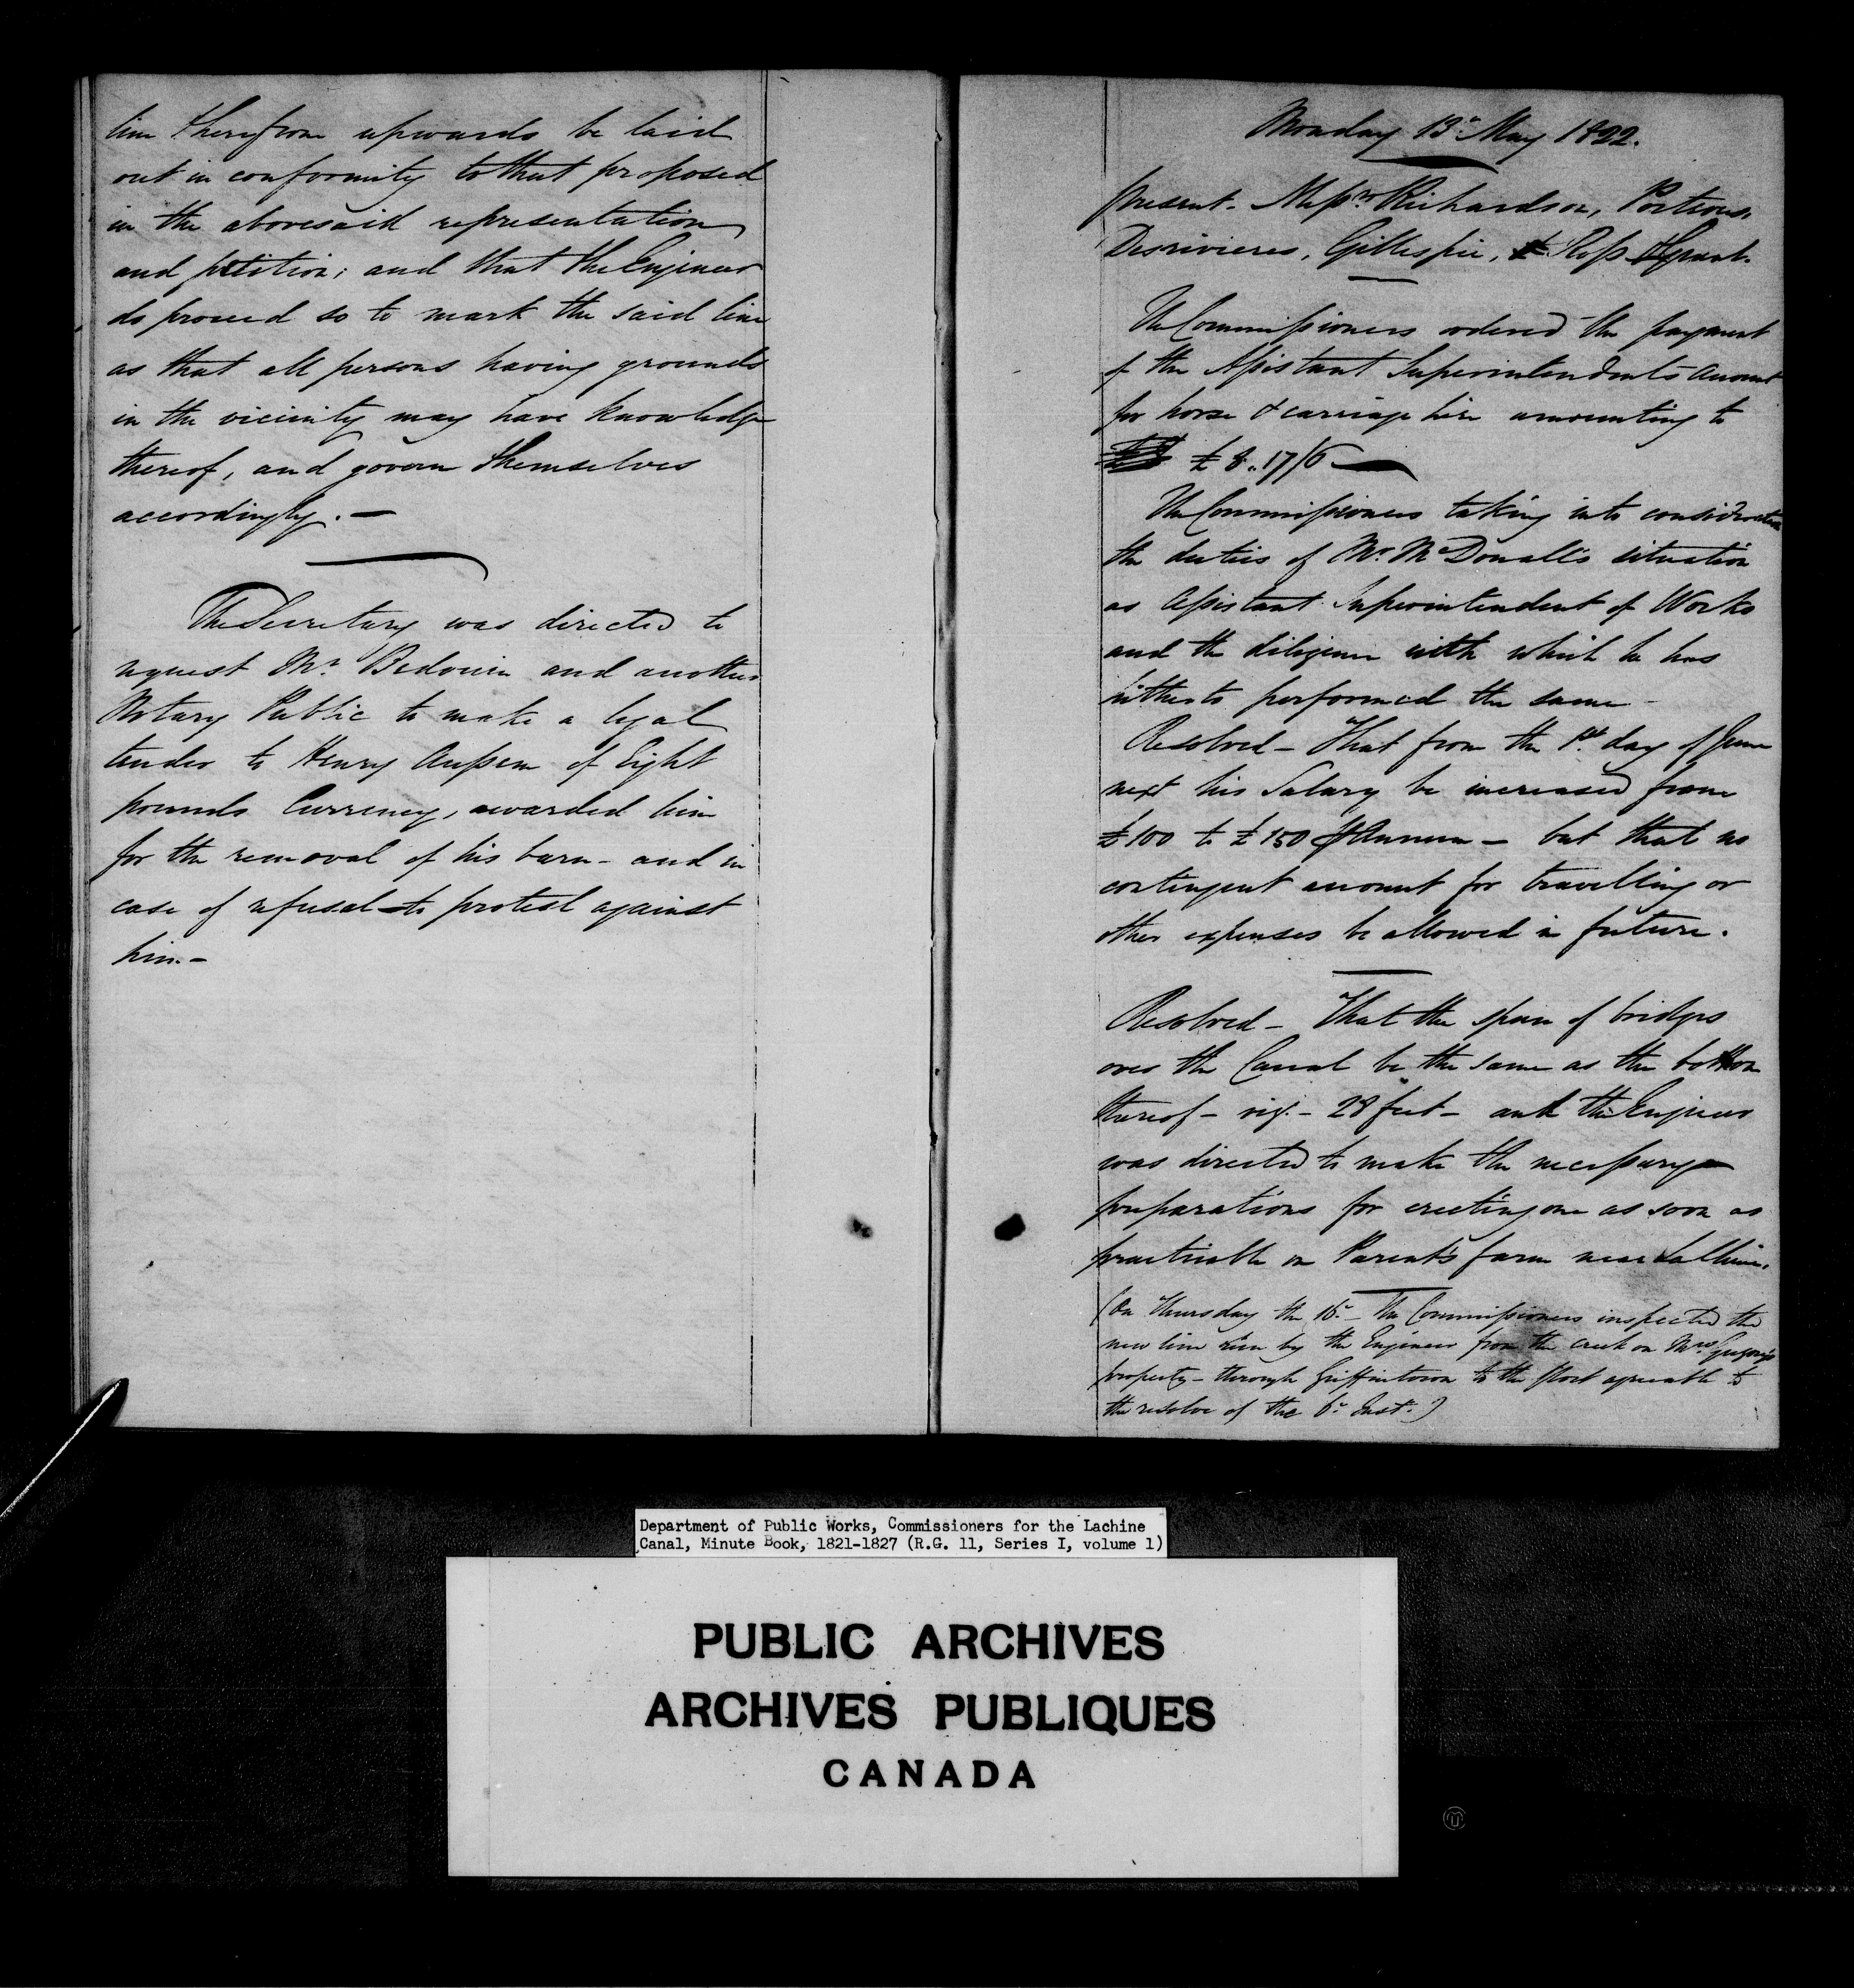 line therefrom upwards be laid
out in conformity to that proposed
in the abovesaid representation
and petition; and that the Engineer
do proceed so to mark the said line
as that all persons having grounds
in the vicinity may have knowledge
thereof, and govern themselves
accordingly. —
The Secretary was directed to
request Mr. Bedouin and another
Notary Public to make a legal
tender to Henry of Eight
pounds Currency, awarded him
for the removal of his barn - and in
case of refusal to protest against
him. -
Monday 13th May 1822.
Present - Messrs Richardson, Porteous,
Desrivieres, Gillespie, Ross & Grant.
The Commissioners ordered the payment
of the Assistant Superintendents account
for horse & carriage hire amounting to
£ 8.. 17/6
The Commissioners taking into consideration
the duties of Mr. McDonall's situation
as Assistant Superintendent of Works
and the diligence with which he has
hitherto performed the same -
Resolved - That from the 1st day of June
next his Salary be increased from
£100 to £150 P Annum - but that no
contingent account for travelling or
other expenses be allowed in future.
Resolved - That the span of bridges
over the Canal be the same as the bottom
thereof - viz. - 28 feet - and the Engineer
was directed to make the necessary
preparations for erecting one as soon as
practicable on Parent's farm near La Chine.
(On Thursday the 16th - The Commissioners inspected the
new line run by the Engineer from the creek on Mrs Gregory's
property - through Griffintown to the Port agreeable to
the resolve of the 6th Inst.)
Department of Public Works, Commissioners for the Lachine
Canal, Minute Book, 1821-1827 (R.G. 11, Series I, volume 1)
PUBLIC ARCHIVES
ARCHIVES PUBLIQUES
CANADA